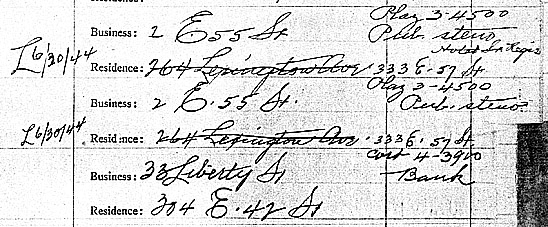 Residence:
Plaz 3-4500
Business: 2 E 55 St Pub. steno
Hotel St Regis
L 6/30/44
Residence: 264 Lexington Ave 333 E. 57 St
Plaz 3-4500
Business: 2 E. 55 St. Pub. steno.
L 6/30/44
Residence: 264 Lexington Ave. 333 E. 57 St.
Cort 4-3900
Business: 33 Liberty St Bank
Residence: 304 E. 42 St